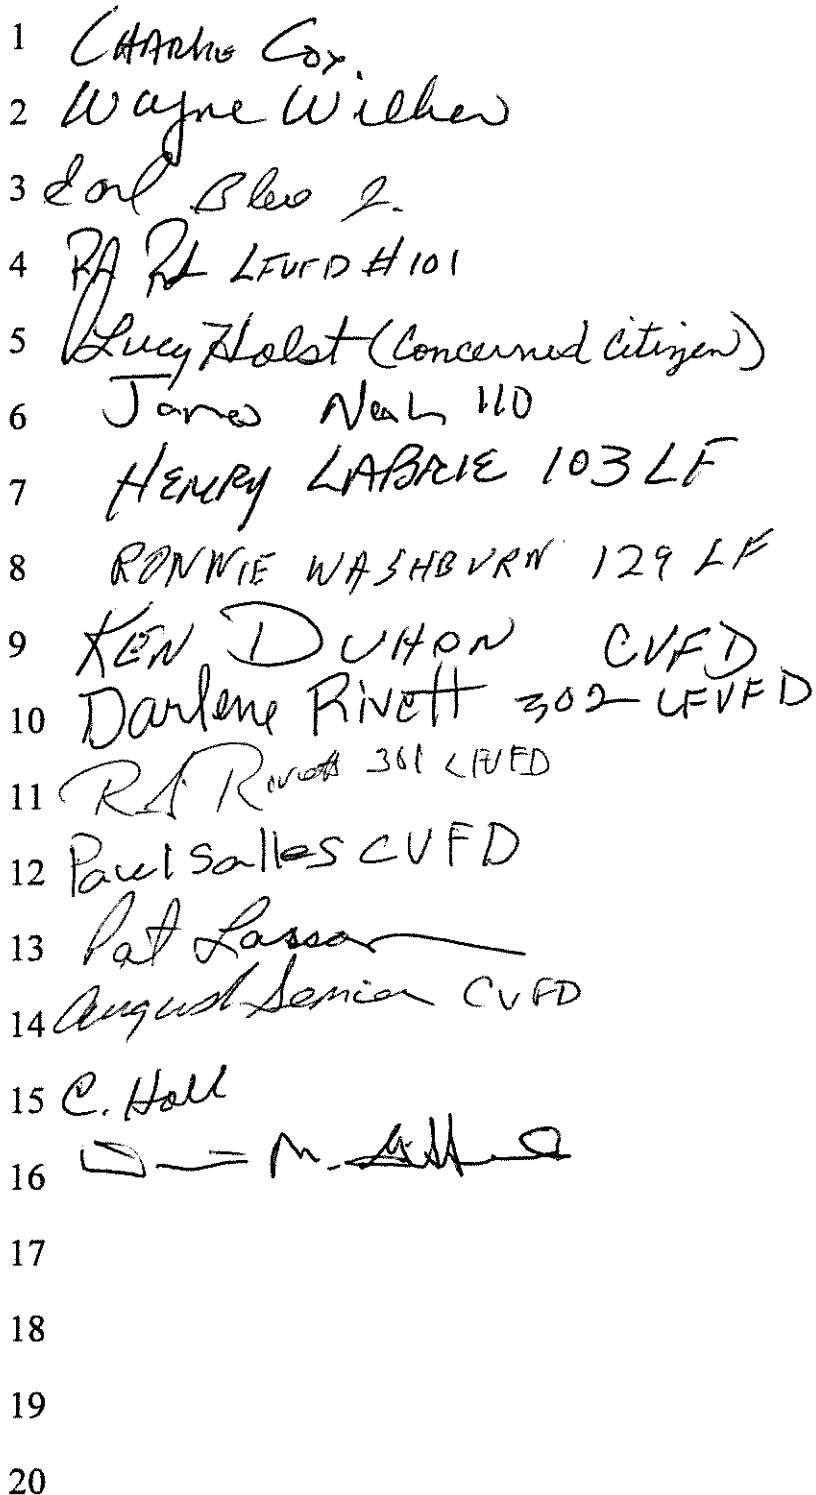 1 CHARLIE Cox
2 Wayne
3 Earl
4 LFVFD #101
5 Lucy Holst (Concerned Citizen)
6 James 110
7 HENRY LABRIE 103 LF
8 RONNIE WASHBURN 129 LF
9 KEN DUHON CVFD
10 Darlene Rivett 302 LFVFD
11 Rivett 301 LFVFD
12 Paul Salles CVFD
13 Pat
14 August CVFD
15 C. Hall
16 M.
17
18
19
20